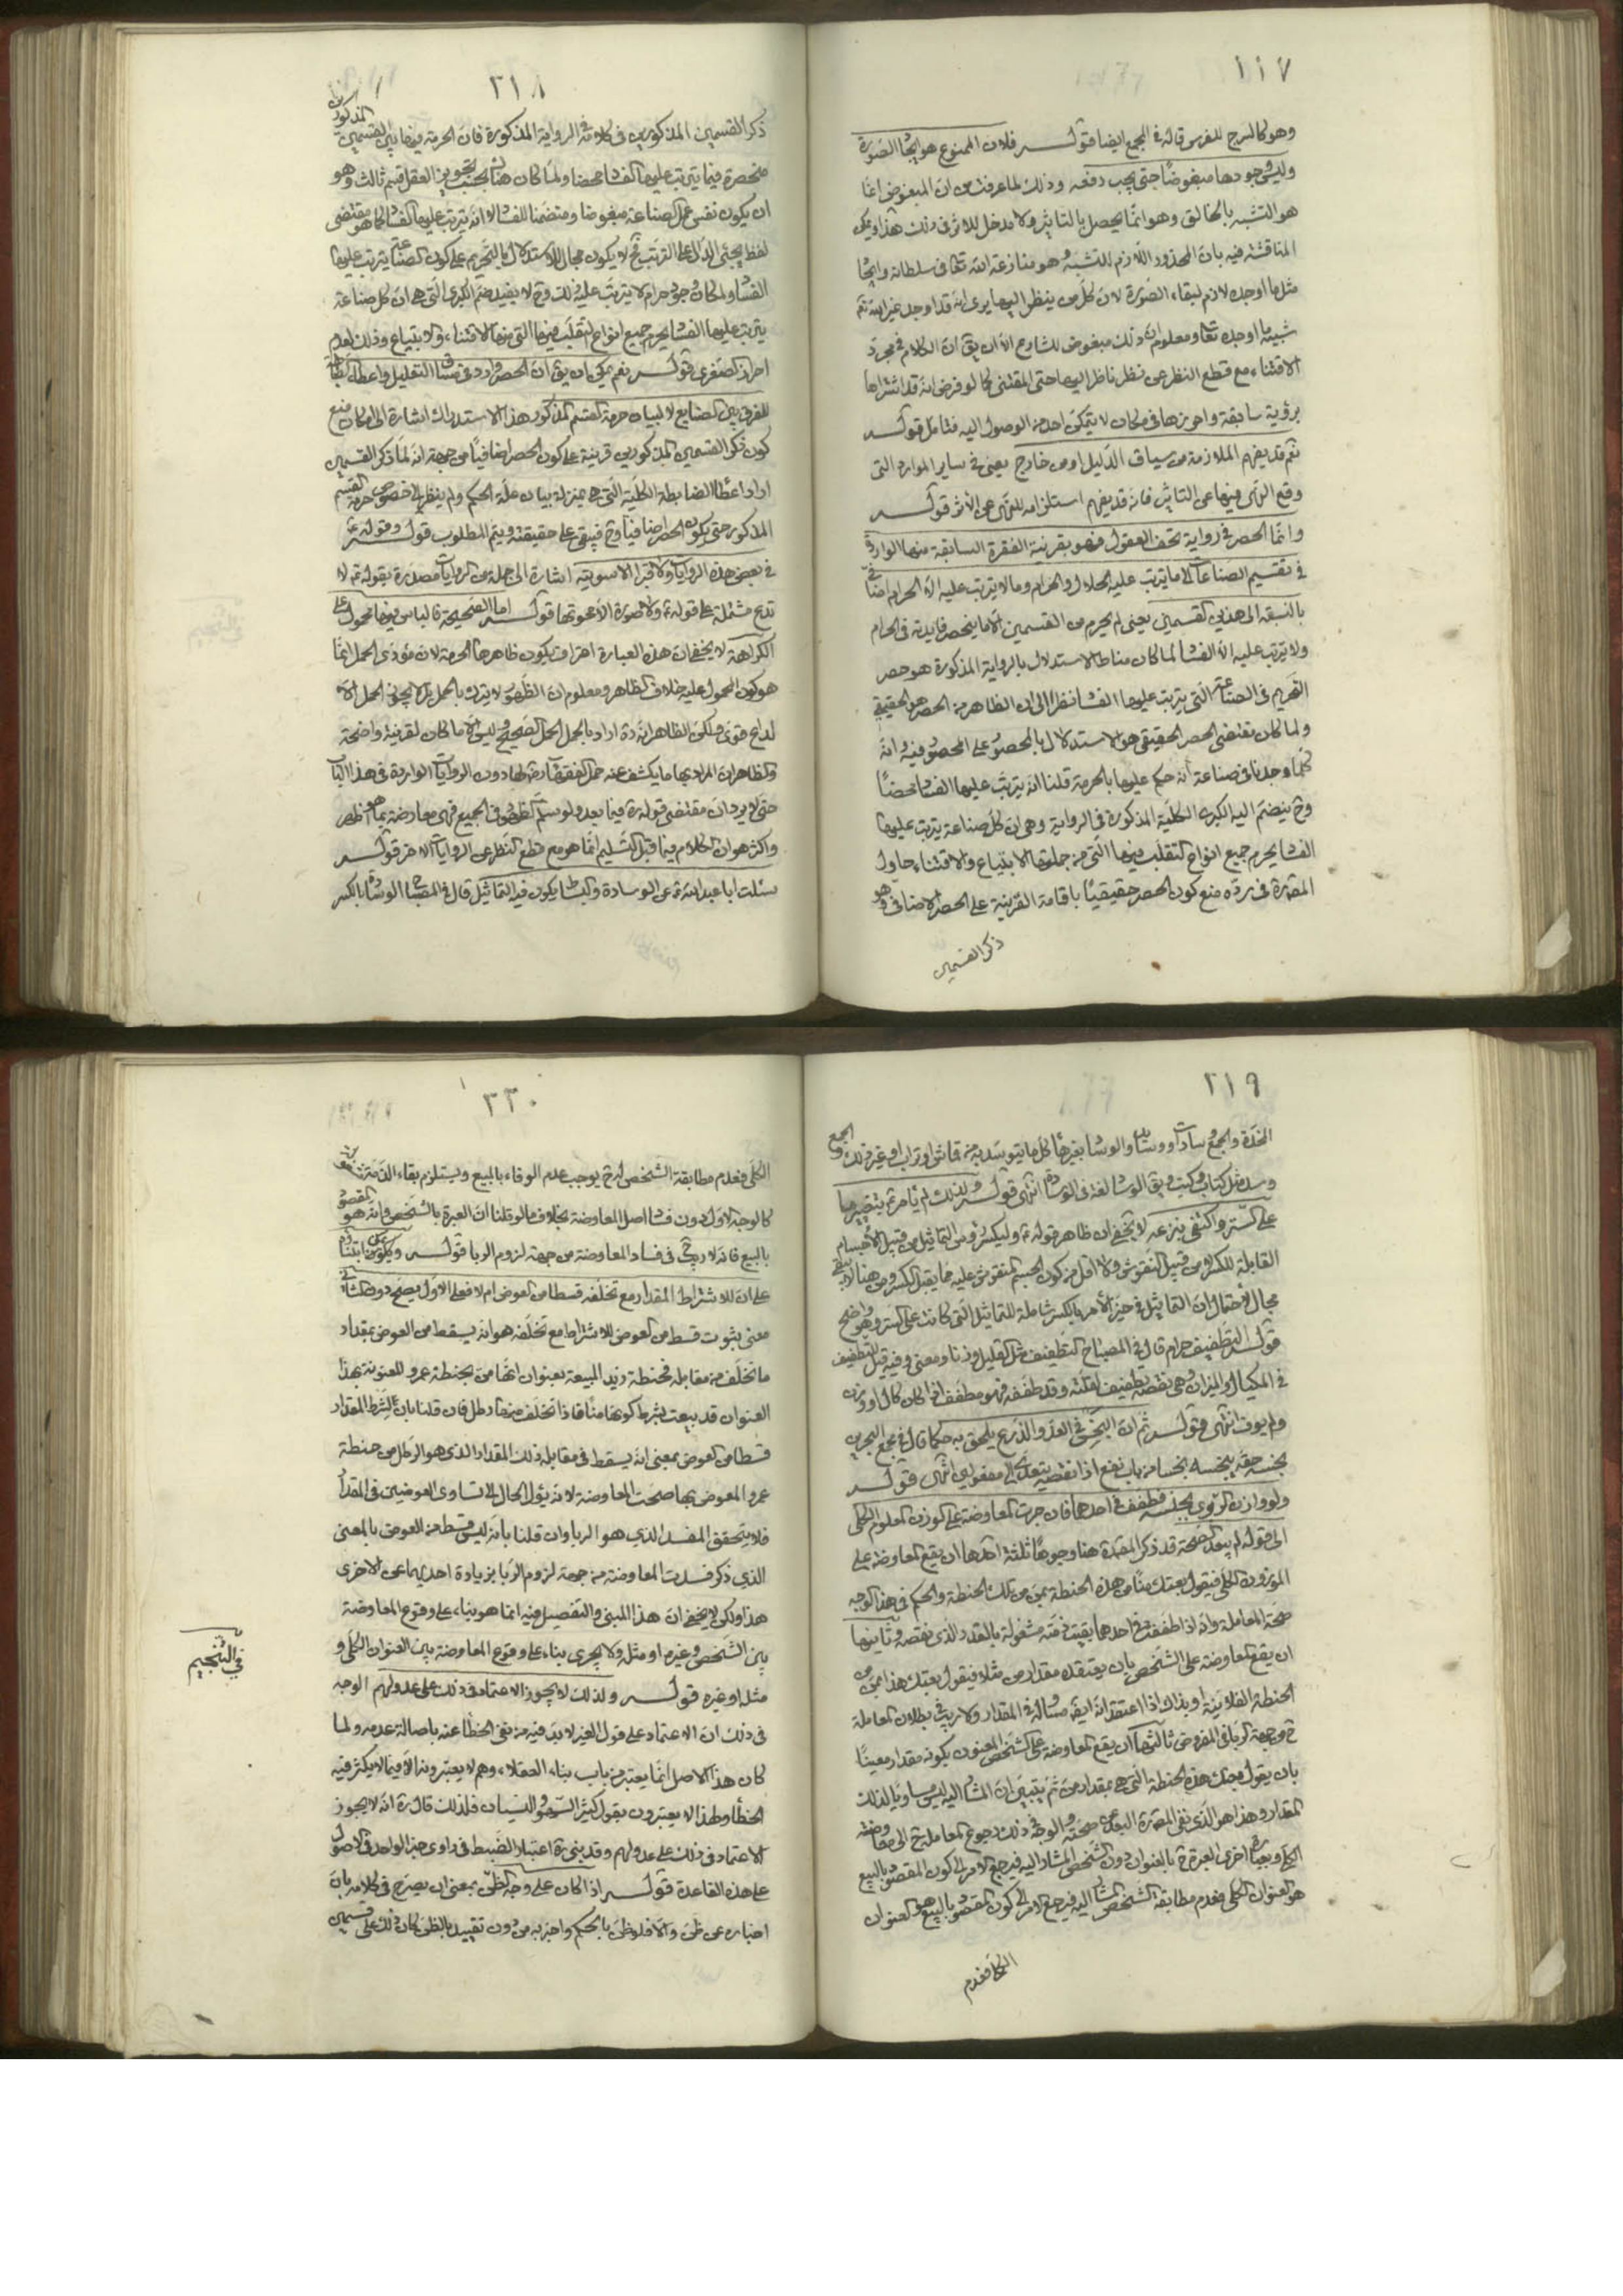 ١١٧
وهو كالسرج للفرس قاله في المجمع ايضا قولـــه فلان الممنوع هو ايجاد الصورة
وليس وجودها مبغوضا حتى يجب دفعه وذلك لما عرفت من ان المبغوض انما
هو التشبه بالخالق وهو انما يحصل بالتاثير ولا مدخل للاثر في ذلك هذا ويمكن
المناقشة فيه بان المحذور اللازم للتشبه هو منازعة الله تعالى في سلطانه وايجاد
مثل ما اوجده لازم لبقاء الصورة لان كل من ينظر اليها يرى انه قد اوجد غير الله تعالى
شبيه ما اوجده تعالى ومعلوم ان ذلك مبغوض للشارع الا ان يق ان الكلام في مجرد
الاقتناء مع قطع النظر عن نظر ناظر اليها حتى المقتنى كما لو فرض انه قد اشتراها
برؤية سابقة واحرزها في مكان لا يتمكن احد من الوصول اليه فتامل قولـــه
نعم قد يفهم الملازمة من سياق الدليل او من خارج يعنى في ساير الموارد التى
وقع النهى فيها عن التاثير فانه قد يفهم استلزامه للنهى عن الاثر قولـــه
وانما الحصر في رواية تحف العقول فهو بقرينة الفقرة السابقة منها الواردة
في تقسيم الصناعات الى ما يترتب عليه الحلال والحرام وما لا يترتب عليه الا الحرام اضافى
بالنسبة الى هذين القسمين يعنى لم يحرم من القسمين الا ما ينحصر فايدته في الحرام
ولا يترتب عليه الا الفساد لما كان مناط الاستدلال بالرواية المذكورة هو حصر
التحريم في الصناعة التى يترتب عليها الفساد نظرا الى ان الظاهر من الحصر هو الحقيقي
ولما كان مقتضى الحصر الحقيقي هو الاستدلال بالمحصور على المحصور فيه وانه
كلما وجدنا في صناعة انه حكم عليها بالحرمة قلنا انه يترتب عليها الفساد محضا
وح ينضم اليه الكبرى الكلية المذكورة في الرواية وهي ان كل صناعة يترتب عليها
الفساد يحرم جميع انواع التقلب فيها التى من جملتها الابتياع والاقتناء حاول
المصره في رده منع كون الحصر حقيقيا باقامة القرينة على الحصر الاضافى وهو
ذكر القسمين
٢١٨
ذكر القسمين المذكورين في كلامه في الرواية المذكورة فان الحرمة فيما بين القسمين المذكورين
منحصرة فيما يترتب عليها الفساد محضا ولما كان هناك بحسب تجويز العقل قسم ثالث وهو
ان يكون نفس عمل الصناعة مبغوضا ومتضمنا للفساد لا انه يترتب عليها الفساد كما هو مقتضى
لفظ يجئى الدال على الترتب فح لا يكون مجال للاستدلال بالتحريم على كون الصناعة يترتب عليها
الفساد ولو كان وجود حرام لا يترتب عليه ذلك وح لا يفيد ضم الكبرى التى هي ان كل صناعة
يترتب عليها الفساد يحرم جميع انواع التقلب فيها التى منها الاقتناء والابتياع وذلك لعدم
احراز الصغرى قولـــه نعم يمكن ان يق ان الحصر وارد في مساق التعليل واعطاء الضابطة
للفرق بين الصنايع لا لبيان حرمة القسم المذكور هذا الاستدراك اشارة الى امكان منع
كون ذكر القسمين المذكورين قرينة على كون الحصر اضافيا من جهة انه لما ذكر القسمين
اراد اعطاء الضابطة الكلية التى هي بمنزلة بيان علة الحكم ولم ينظر الى خصوص حرمة القسم
المذكور حتى يكون الحصر اضافيا وح فيبقى على حقيقته ويتم المطلوب قولـــه وقوله ع
في بعض هذه الروايات ولا قبرا الا سويته اشارة الى جملة من الروايات مصدرة بقوله ع لا
تدع مشتملة على قوله ع ولا صورة الا محوتها قولـــه اما الصحيحة فالباس فيها محمول على
الكراهة لا يخفى ان هذه العبارة اعتراف بكون ظاهرها الحرمة لان مؤدى الحمل انما
هو كون المحمول عليه خلاف الظاهر ومعلوم ان الظهور لا يترك بالحمل بل لا يجوز الحمل الا
لداع قوى ولكن الظاهر انه ره اراد بالحمل الحمل الصحيح وليس الا ما كان لقرينة واضحة
والظاهر ان المراد بها ما يكشف عنه حمل الفقهاء دون الروايات الواردة في هذا الباب
حتى لا يرد ان مقتضى قوله ره فيما بعد ولو سلم الظهور في الجميع فهى معارضة بما هو اظهر
واكثر هو ان الكلام فيما قبل التسليم انما هو مع قطع النظر عن الروايات الاخر قولـــه
سئلت ابا عبد الله ع عن الوسادة والبساط يكون فيه التماثيل قال في المصباح الوسادة بالكسر
٢١٩
المخدة والجمع وسادات ووسائد والوساد بغير هاء كل ما يتوسد به من قماش او تراب او غير ذلك والجمع
وسد مثل كتاب وكتب ويق الوساد لغة في الوسادة انتهى قولـــه ولذلك لم يامر ع بتغيير ما
على الستر واكتفى بنزعه لا يخفى ان ظاهر قوله ع وليكسر رؤس التماثيل من قبيل الاجسام
القابلة للكسر لا من قبيل النقوش ولا اقل من كون الجسم المنقوش عليه مما يقبل الكسر ومن هنا لا يبقى
مجال لاحتمال ان التماثيل في حيز الامر بالكسر شاملة للتماثيل التى كانت على الستر وهو واضح
قولـــه التطفيف حرام قال في المصباح التطفيف مثل التقليل وزنا ومعنى وفيه قيل لتطفيف
في المكيال والميزان وهي نقصه تطفيف لقلته وقد طففه فهو مطفف اذا كان كال او وزن
ولم يوف انتهى قولـــه ثم ان البخس في العد والذرع يلحق به حكما قال في مجمع البحرين
بخسه حقه يبخسه بخسا من باب نفع اذا نقصه يتعدى الى مفعولين انتهى قولـــه
ولو وازن الربوى بجنسه فطفف في احدهما فان جرت المعاوضة على الوزن المعلوم الكلى
الى قوله لم يبعد الصحة قد ذكر المصره هنا وجوها ثلثة احدها ان يقع المعاوضة على
الموزون الكلى فيقول بعتك منا من هذه الحنطة بمن من تلك الحنطة والحكم في هذا الوجه
صحة المعاملة وانه اذا طفف في احدهما بقيت ذمته مشغولة بالقدر الذى نقصه وثانيها
ان يقع المعاوضة على الشخص بان يعتقده مقدار من مثلا فيقول بعتك هذا بمن من
الحنطة الفلانية او بذاك اذا اعتقد انه ايضا مساو له في المقدار ولا ريب في بطلان المعاملة
ح من جهة الربا في المفروض ثالثها ان يقع المعاوضة على الشخص المعنون بكونه مقدار معينا
بان يقول بعتك هذه الحنطة التى هي بمقدار من ثم يتبين ان المشار اليه ليس مساويا لذلك
المقدار وهذا هو الذى نفى المصره البعد عن صحته والوجه في ذلك رجوع المعاملة ح الى معاوضة
الكلى وبعبارة اخرى العبرة ح بالعنوان دون الشخص المشار اليه فيرجع الامر الى كون المقصود بالبيع
هو العنوان الكلى فعدم مطابقة الشخص المشار اليه فيرجع الامر الى كون المقصود بالبيع هو العنوان
الكلى فعدم
٢٢٠
الكلى فعدم مطابقة الشخص له ح يوجب عدم الوفاء بالمبيع ويستلزم بقاء الذمة مشغولة
كالوجه الاول دون فساد اصل المعاوضة بخلاف ما لو قلنا ان العبرة بالشخص وانه هو المقصود
بالبيع فانه لا ريب ح في فساد المعاوضة من جهة لزوم الربا قولـــه ويمكن ابتناؤه
على ان لاشتراط المقدار مع تخلفه قسطا من العوض ام لا فعلى الاول يصح دون الثانى
معنى ثبوت قسط من العوض للاشتراط مع تخلفه هو انه يسقط من العوض بمقداد
ما تخلف من مقابله فحنطة زيد المبيعة بعنوان انها من بحنطة عمرو المعنونة بهذا
العنوان قد بيعت بشرط كونها منا فاذا تخلف منها رطل فان قلنا بان للشرط المقدار
قسطا من العوض بمعنى انه يسقط في مقابله ذلك المقدار الذى هو الرطل من حنطة
عمرو المعوض بها صحت المعاوضة لانه يؤل الحال الى تساوى العوضين في المقدار
فلا يتحقق المفسد الذى هو الربا وان قلنا بانه ليس له قسط من العوض بالمعنى
الذى ذكر فسدت المعاوضة من جهة لزوم الربا بزيادة احديهما عن الاخرى
هذا ولكن لا يخفى ان هذا المبنى والتفصيل فيه انما هو بناء على وقوع المعاوضة
بين الشخص وغيره او مثله ولا يجرى بناء على وقوع المعاوضة بين العنوان الكلى و
مثله او غيره قولـــه ولذلك لا يجوز الاعتماد في ذلك على عدولهم الوجه
في ذلك ان الاعتماد على قول الغير لا بد فيه من نفى الخطأ عنه باصالة عدمه ولما
كان هذا الاصل انما يعتبر من باب بناء العقلاء وهم لا يعتبرونه الا فيما لا يكثر فيه
الخطأ ولهذا لا يعتبرون بقول كثير السهو والنسيان فلذلك قال ره انه لا يجوز
الاعتماد في ذلك على عدولهم وقد بنى ره اعتبار الضبط في راوى خبر الواحد في الاصول
على هذه القاعدة قولـــه اذا كان على وجه الظن بمعنى ان يصرح في كلامه بان
اخباره عن ظن والا فلو ظن بالحكم واخبر به من دون تقييد بالظن كان ذلك على قسمين
في التنجيم